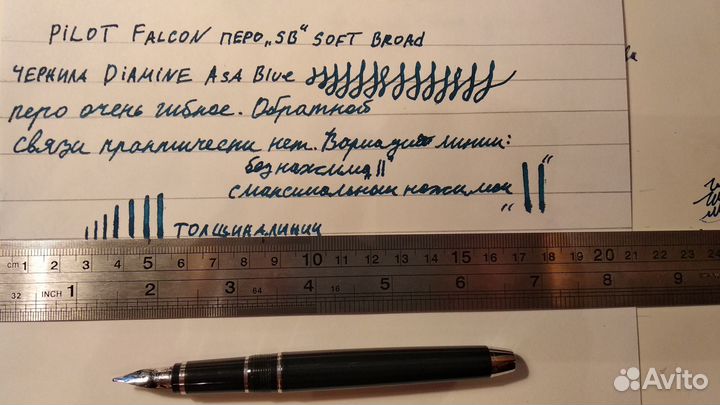 PILOT FALCON ПЕРО „SB“ SOFT BROAD
ЧЕРНИЛА DIAMINE ASA BLUE
перо очень гибкое. Обратной
связи практически нет. Вариация линии:
без нажима „||“
с максимальным нажимом „||“
ТОЛЩИНА ЛИНИИ
cm 1 2 3 4 5 6 7 8 9 10 11 12 13 14 15 16 17 18 19 20 21 22
32 INCH 1 2 3 64 4 16 5 6 7 8 9
Avito